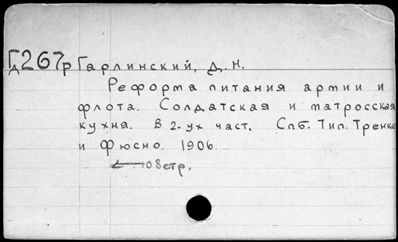 Гд267р Гарлинский, Д. Н.
Реформа питания армии и
флота. Солдатская и матросская
кухня. В 2-ух част. Спб. Тип. Тренке
и Фюсно. 1906.
08 стр.